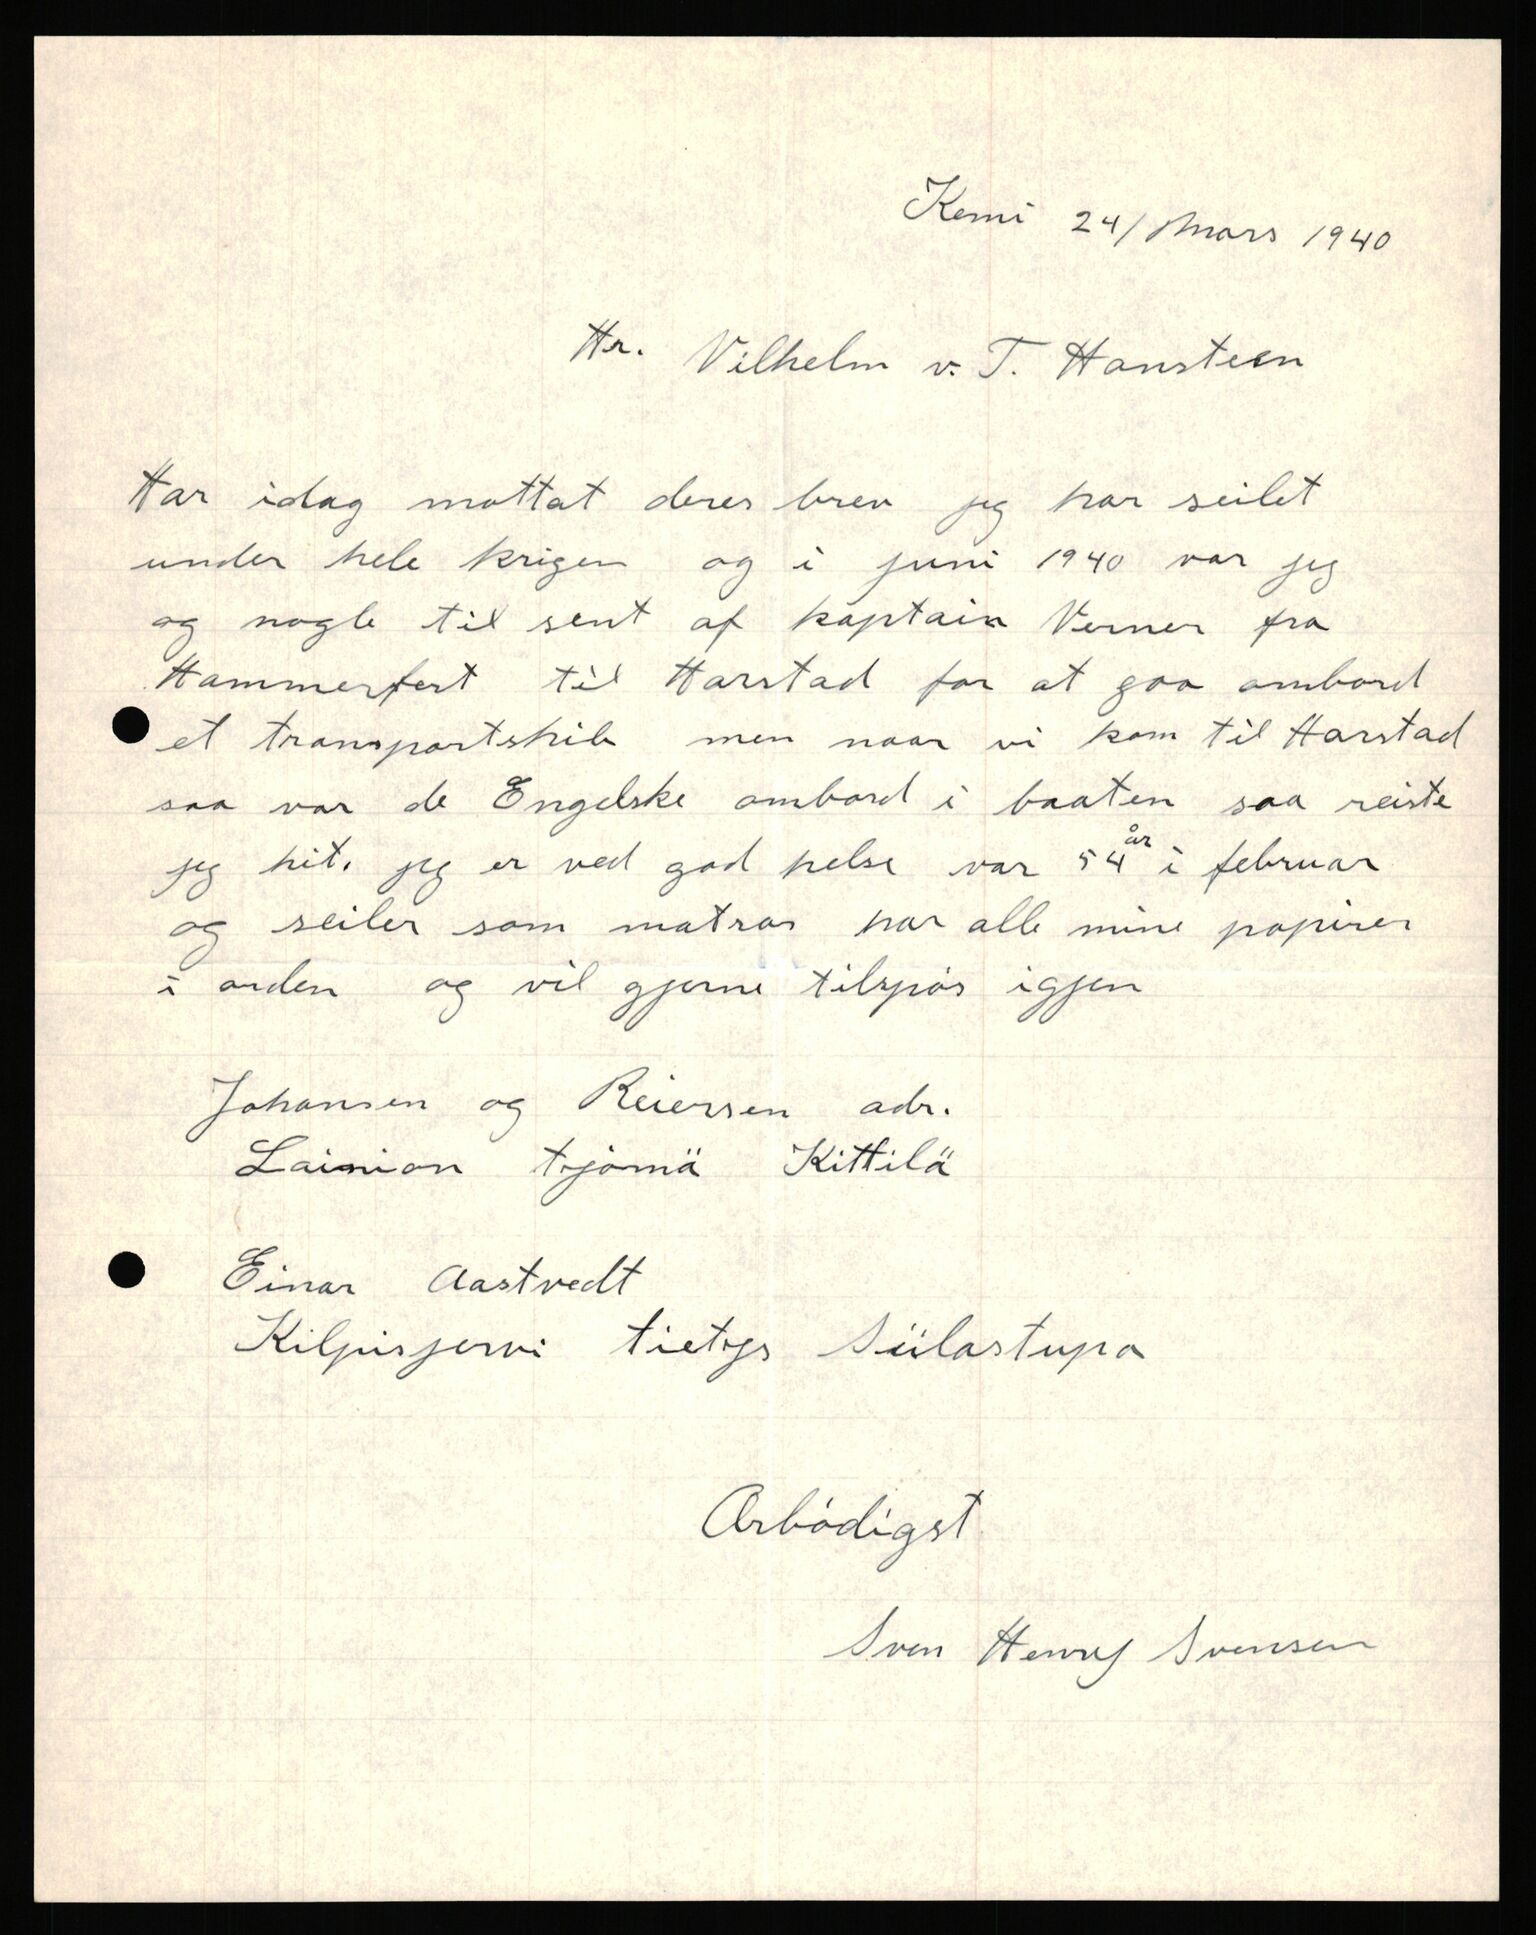 Kemi 24/ Mars 1940
Hr. Vilhelm v. T. Hansteen
Har idag mottat deres brev jeg har seilet
under hele krigen og i juni 1940 var jeg
og nogle til sent af kaptain Verner fra
Hammerfest til Harstad for at gaa ombord
et transportskib men naar vi kom til Harstad
saa var de Engelske ombord i baaten saa reiste
jeg hit. jeg er ved god helse var 54 år i februar
og seiler som matros har alle mine papirer
i orden og vil gjerne tilsjøs igjen
Johansen og Reiersen adr.
Lainion työmä Kittilä
Einar Aastvedt
Kilpisjervi Siilastupa
Arbödigst
Sven Henry Svensen